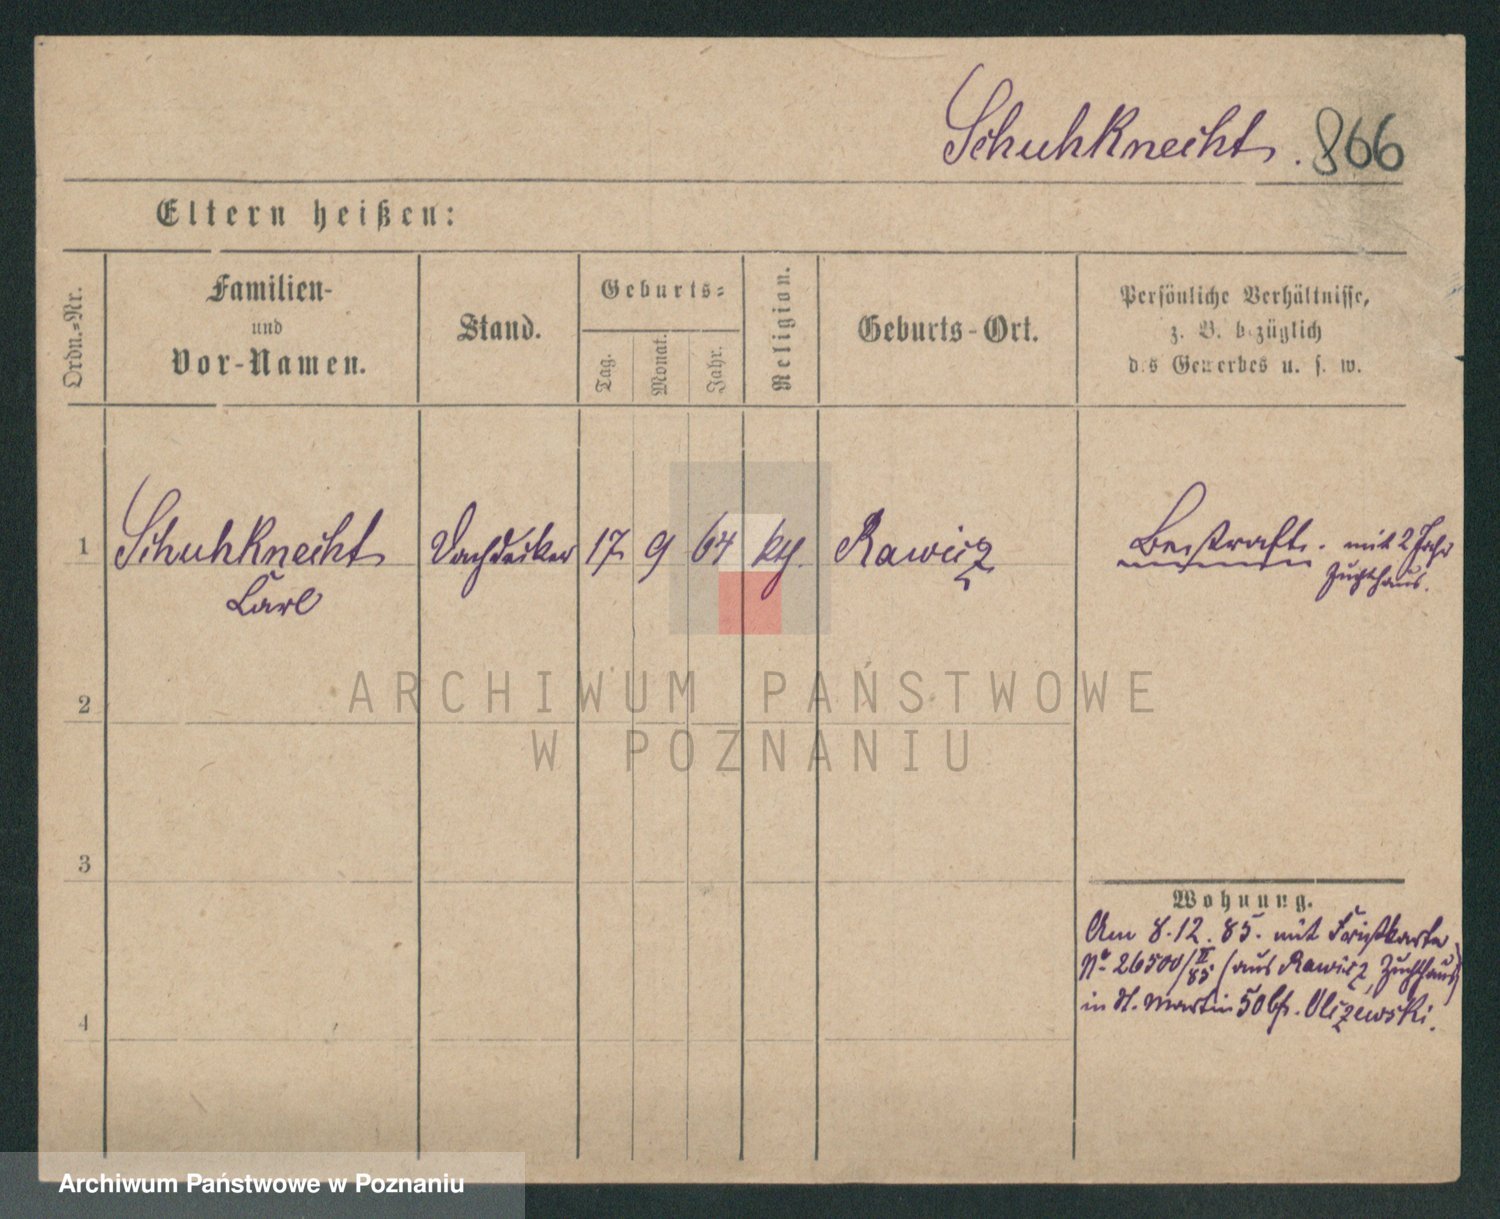 Schuhknecht. 866
Eltern heißen:
Ordn.-Nr.
Familien-
und
Vor-Namen.
Stand.
Geburts-
Tag.
Monat.
Jahr.
Religion.
Geburts-Ort.
Persönliche Verhältnisse,
z. B. bezüglich
des Gewerbes u. s. w.
1 Schuhknecht Dachdecker 17 9 64 kth. Rawicz Bestraft. mit 2 Jahr
Carl Zuchthaus.
2
3
4
Wohnung.
Am 8.12.85. mit
No 26500/II 85 (aus Rawicz, Zuchthaus)
in St. Martin 50 bei Olszewski.
ARCHIWUM PAŃSTWOWE
W POZNANIU
Archiwum Państwowe w Poznaniu